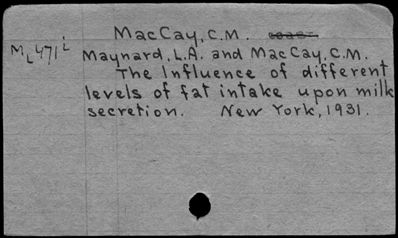 MacCay, C.M.
ML471i
Maynard, L.A. and MacCay, C.M.
The Influence of different
levels of fat intake upon milk
secretion. New York, 1931.